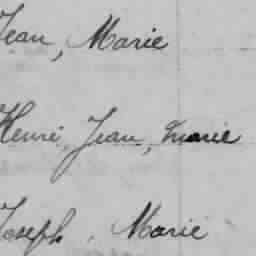 Jean, Marie
Henri, Jean, Marie
Joseph, Marie